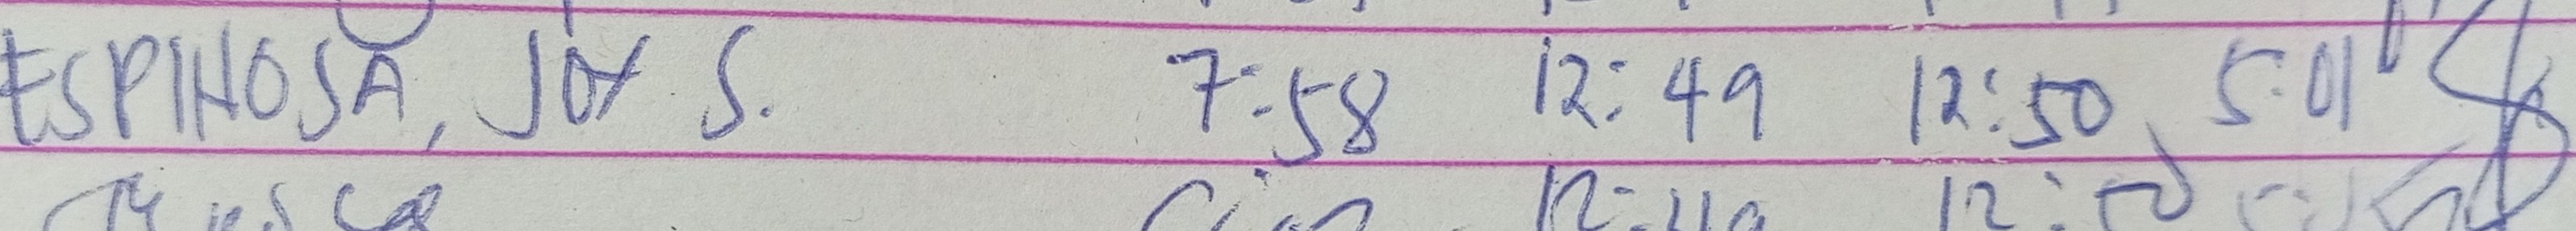 ESPINOSA, JOY S. 7:58 12:49 12:50 5:01
12:49 12:50